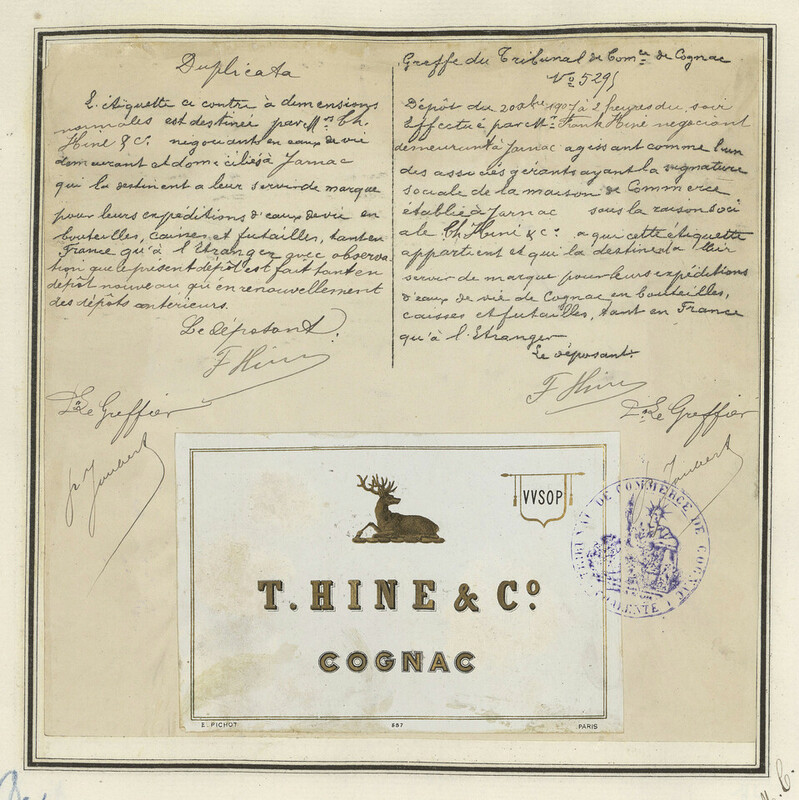 Duplicata
L'étiquette ci contre à dimensions
normales est destinée par Mrs Th.
Hine & Co. negociants en eaux de vie
demeurant et domiciliés à Jarnac
qui la destinent a leur servir de marque
pour leurs expéditions d'eaux de vie en
bouteilles, caisses et futailles, tant en
France qu'à l'Etranger avec observa-
tion que le présent dépôt est fait tant en
dépôt nouveau qu'en renouvellement
des dépôts antérieurs.
Le déposant.
F Hine
Le Greffier
Joubert
Greffe du Tribunal de Comce de Cognac
No 529
Dépôt du 20 1907 à 2 heures du soir
Effectué par Mr Frank Hine negociant
demeurant à Jarnac agissant comme l'un
des associés gérants ayant la signature
sociale de la maison de Commerce
établie à Jarnac sous la raison soci
ale Th. Hine & Co. a qui cette étiquette
appartient et qui la destine a leur
servir de marque pour leurs expéditions
d'eaux de vie de Cognac en bouteilles,
caisses et futailles, tant en France
qu'à l'Etranger
Le déposant.
F Hine
Le Greffier
Joubert
VVSOP
T. HINE & Co
COGNAC
E. PICHOT 587 PARIS
TRIBUNAL DE COMMERCE DE COGNAC
CHARENTE